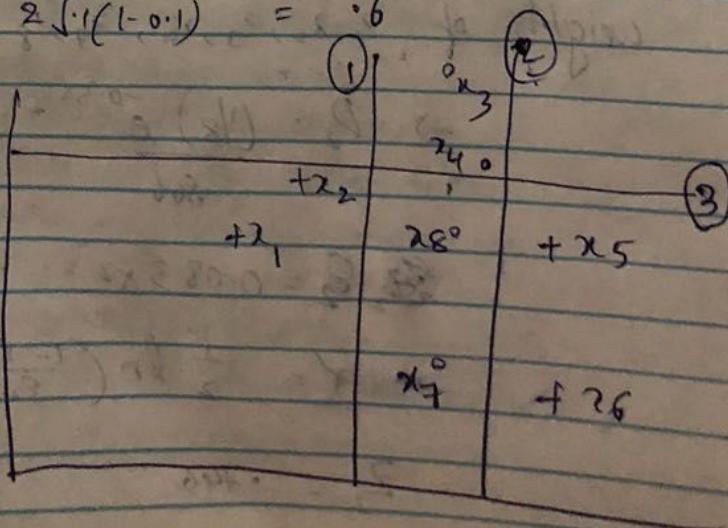 2√.1(1-0.1) = .6
① ②
°x3
x4 °
③
+x2
+x1 x8° + x5
x7° + x6